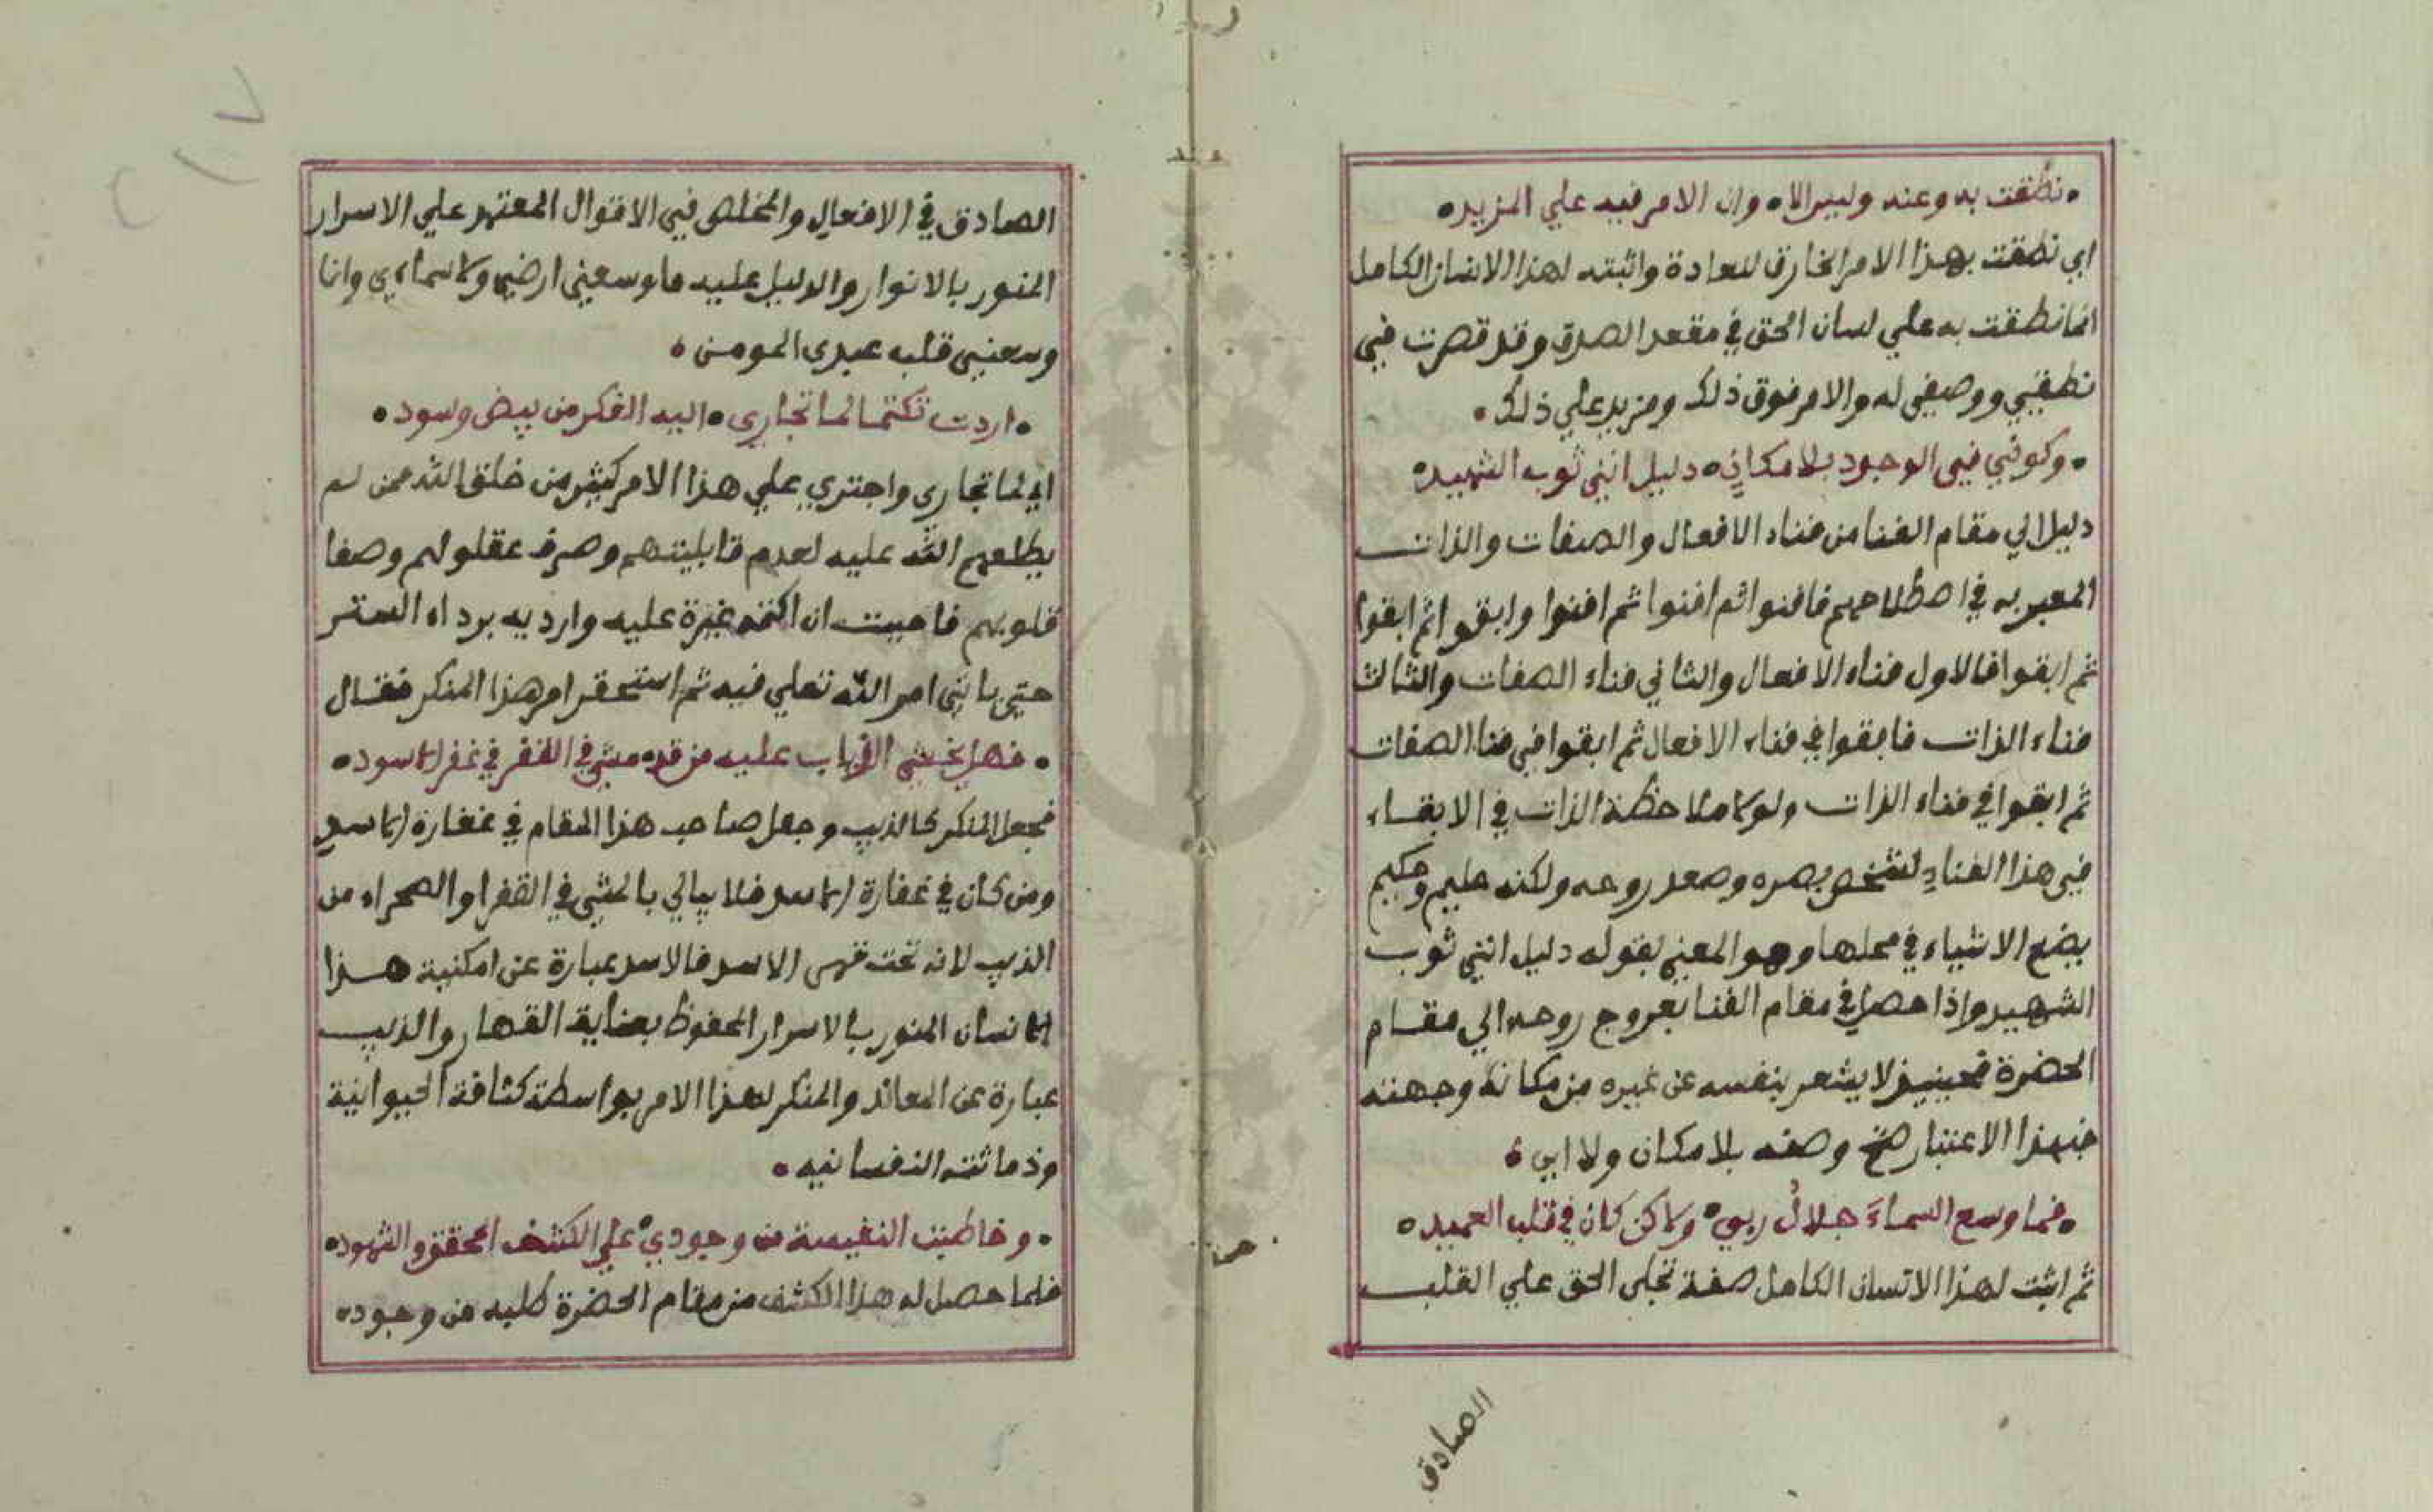 نطقت به وعنه وليس الا • وان الامر فيه علي المزيد •
اي نطقت بهذا الامر الخارق للعادة واثبته لهذا الانسان الكامل
انما نطقت به علي لسان الحق في مقعد الصدق وقد قصرت في
نطقي ووصفي له والامر فوق ذلك ومزيد علي ذلك •
• وكوني في الوجود بلا مكان • دليل انني ثوب الشهيد •
دليل الي مقام الفنا من فناء الافعال والصفات والذات
المعبر به في اصطلاحهم فافنوا ثم افنوا ثم افنوا وابقوا ثم ابقوا
ثم ابقوا فالاول فناء الافعال والثاني فناء الصفات والثالث
فناء الذات فابقوا في فناء الافعال ثم ابقوا في فنا الصفات
ثم ابقوا في فناء الذات ولولا ملاحظة الذات في الابقاء
في هذا الفناء لشخص بصره وصعد روحه ولكنه عليم وحكيم
يضع الاشياء في محلها وهو المعني بقوله دليل انني ثوب
الشهيد واذا حصل في مقام الفنا بعروج روحه الي مقام
الحضرة فحينيذ لا يشعر بنفسه عن غيره من مكانه وجهته
فبهذا الاعتبار صح وصفه بلا مكان ولا اين •
• فما وسع السماءَ جلالُ ربي • ولاكن كان في قلب العميد •
ثم اثبت لهذا الانسان الكامل صفة تجلي الحق علي القلب
الصادق
الصادق في الافعال والمخلص في الاقوال المعتهر علي الاسرار
المنور بالانوار والدليل عليه ما وسعني ارضي ولا سماءي وانما
وسعني قلب عبدي المومن •
• اردت تكتما لما تجاري • اليه الفكر من بيض وسود •
اي لما تجاري واجتري علي هذا الامر كثير من خلق الله ممن لم
يطلعهم الله عليه لعدم قابليتهم وصرف عقولهم وصفا
قلوبهم فاحببت ان اكتمه غيرة عليه وارديه برداء الستر
حتي ياتي امر الله تعلي فيه ثم استحقر امر هذا المنكر فقال
• فهل يخشي الذياب عليه من قد • مشي في القفر في غفر الاسود •
فجعل المنكر كالذيب وجعل صاحب هذا المقام في غفارة الاسد
ومن كان في غفارة الاسد فلا يبالي بالمشي في القفر او الصحراء من
الذيب لانه تحت قهر الاسد فالاسد عبارة عن امكنية هذا
الانسان المنور بالاسرار المحفوظ بعناية القهار والذيب
عبارة عن المعاند والمنكر لهذا الامر بواسطة كثافة الحيوانية
وذماثته النفسانيه •
• وخاطبت النفيسة من وجودي • علي الكشف المحقق والشهود •
فلما حصل له هذا الكشف من مقام الحضرة كليه من وجوده